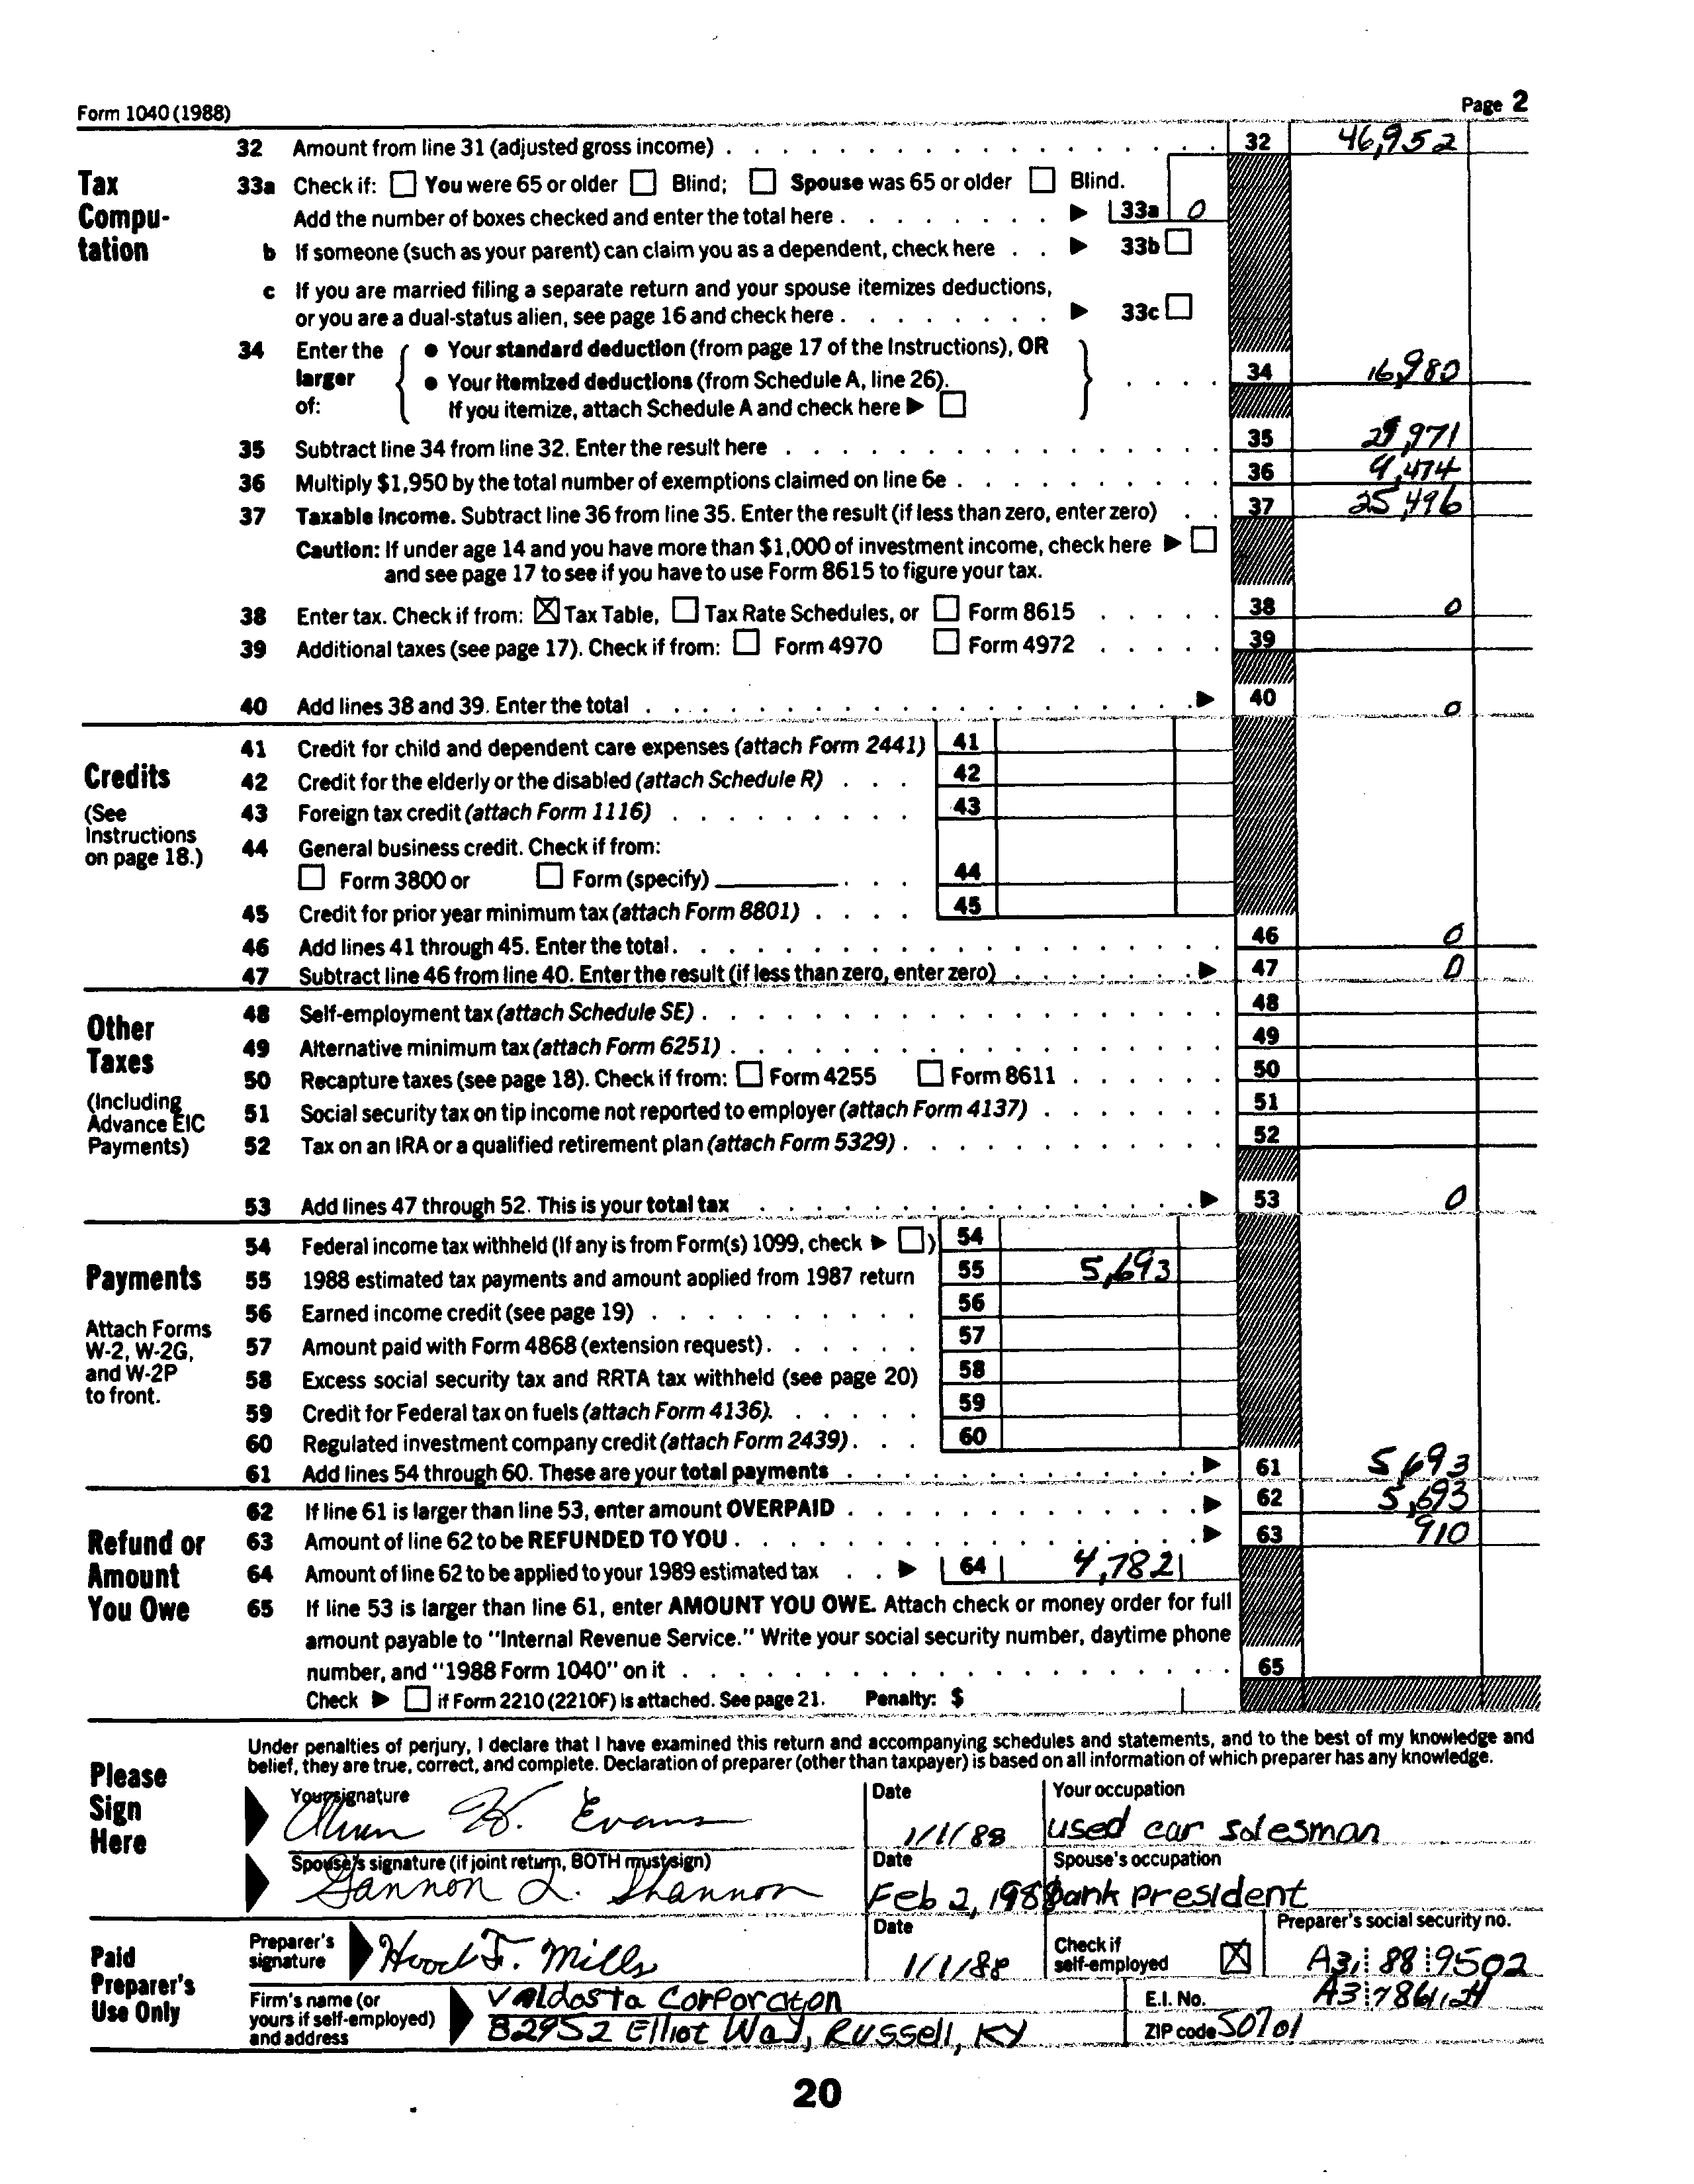 Form 1040 (1988) Page 2
32 Amount from line 31 (adjusted gross income) 32 46,952
Tax Computation
33a Check if: You were 65 or older Blind; Spouse was 65 or older Blind.
Add the number of boxes checked and enter the total here 33a 0
b If someone (such as your parent) can claim you as a dependent, check here 33b
c If you are married filing a separate return and your spouse itemizes deductions,
or you are a dual-status alien, see page 16 and check here 33c
34 Enter the larger of:
• Your standard deduction (from page 17 of the Instructions), OR
• Your itemized deductions (from Schedule A, line 26).
If you itemize, attach Schedule A and check here
34 16,980
35 Subtract line 34 from line 32. Enter the result here 35
36 Multiply $1,950 by the total number of exemptions claimed on line 6e 36 4,474
37 Taxable income. Subtract line 36 from line 35. Enter the result (if less than zero, enter zero) 37 25,496
Caution: If under age 14 and you have more than $1,000 of investment income, check here
and see page 17 to see if you have to use Form 8615 to figure your tax.
38 Enter tax. Check if from: Tax Table, Tax Rate Schedules, or Form 8615 38 0
39 Additional taxes (see page 17). Check if from: Form 4970 Form 4972 39
40 Add lines 38 and 39. Enter the total 40 0
Credits
(See Instructions on page 18.)
41 Credit for child and dependent care expenses (attach Form 2441) 41
42 Credit for the elderly or the disabled (attach Schedule R) 42
43 Foreign tax credit (attach Form 1116) 43
44 General business credit. Check if from:
Form 3800 or Form (specify) 44
45 Credit for prior year minimum tax (attach Form 8801) 45
46 Add lines 41 through 45. Enter the total 46 0
47 Subtract line 46 from line 40. Enter the result (if less than zero, enter zero) 47 0
Other Taxes
(Including Advance EIC Payments)
48 Self-employment tax (attach Schedule SE) 48
49 Alternative minimum tax (attach Form 6251) 49
50 Recapture taxes (see page 18). Check if from: Form 4255 Form 8611 50
51 Social security tax on tip income not reported to employer (attach Form 4137) 51
52 Tax on an IRA or a qualified retirement plan (attach Form 5329) 52
53 Add lines 47 through 52. This is your total tax 53 0
Payments
Attach Forms W-2, W-2G, and W-2P to front.
54 Federal income tax withheld (If any is from Form(s) 1099, check ) 54
55 1988 estimated tax payments and amount applied from 1987 return 55 5,693
56 Earned income credit (see page 19) 56
57 Amount paid with Form 4868 (extension request) 57
58 Excess social security tax and RRTA tax withheld (see page 20) 58
59 Credit for Federal tax on fuels (attach Form 4136) 59
60 Regulated investment company credit (attach Form 2439) 60
61 Add lines 54 through 60. These are your total payments 61 5,693
Refund or Amount You Owe
62 If line 61 is larger than line 53, enter amount OVERPAID 62 5,693
63 Amount of line 62 to be REFUNDED TO YOU 63 910
64 Amount of line 62 to be applied to your 1989 estimated tax 64 4,782
65 If line 53 is larger than line 61, enter AMOUNT YOU OWE. Attach check or money order for full
amount payable to "Internal Revenue Service." Write your social security number, daytime phone
number, and "1988 Form 1040" on it 65
Check if Form 2210 (2210F) is attached. See page 21. Penalty: $
Please Sign Here
Under penalties of perjury, I declare that I have examined this return and accompanying schedules and statements, and to the best of my knowledge and
belief, they are true, correct, and complete. Declaration of preparer (other than taxpayer) is based on all information of which preparer has any knowledge.
Your signature Date Your occupation
H. Evans 1/1/88 used car salesman
Spouse's signature (if joint return, BOTH must sign) Date Spouse's occupation
Gannon L. Shannon Feb 2, 1988 bank president
Paid Preparer's Use Only
Preparer's signature Date Check if self-employed Preparer's social security no.
Hood F. Mills 1/1/88 A3 88 9502
Firm's name (or yours if self-employed) and address
Valdosta Corporation E.I. No.
82952 Elliot Way, Russell, KY ZIP code 50701
20